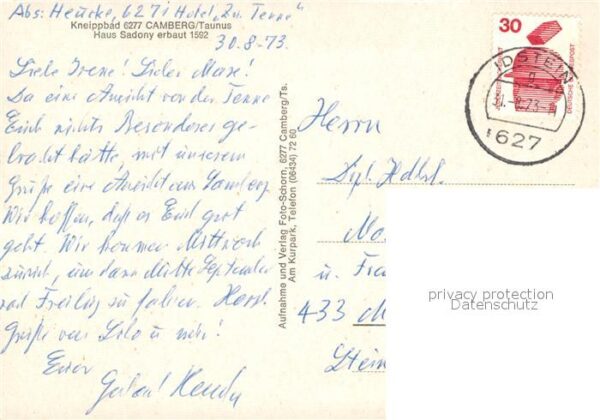 Abs: Heucke, 6271 Hotel „Zur Tenne"
Kneippbad 6277 CAMBERG/Taunus
Haus Sadony erbaut 1592
30.8.73
Liebe Irene! Lieber Maxe!
Da eine Ansicht von der Tenne
Euch nichts Besonderes ge-
bracht hätte, mit unserem
Gruße eine Ansicht aus Camberg
Wir hoffen, daß es Euch gut
geht. Wir kommen Mittwoch
zurück, um dann Mitte September
nach Freilig zu fahren. Herzl.
Grüße von Lilo u mir!
Euer
Aufnahme und Verlag Foto-Schorn, 6277 Camberg/Ts.
Am Kurpark, Telefon (06434) 72 60
30
JEDERZEIT SICHERHEIT
DEUTSCHE BUNDESPOST
IDSTEIN
31.-8.73
627
Herrn
Dipl. Hdhl.
u. Fra
433 M
Stein
privacy protection
Datenschutz